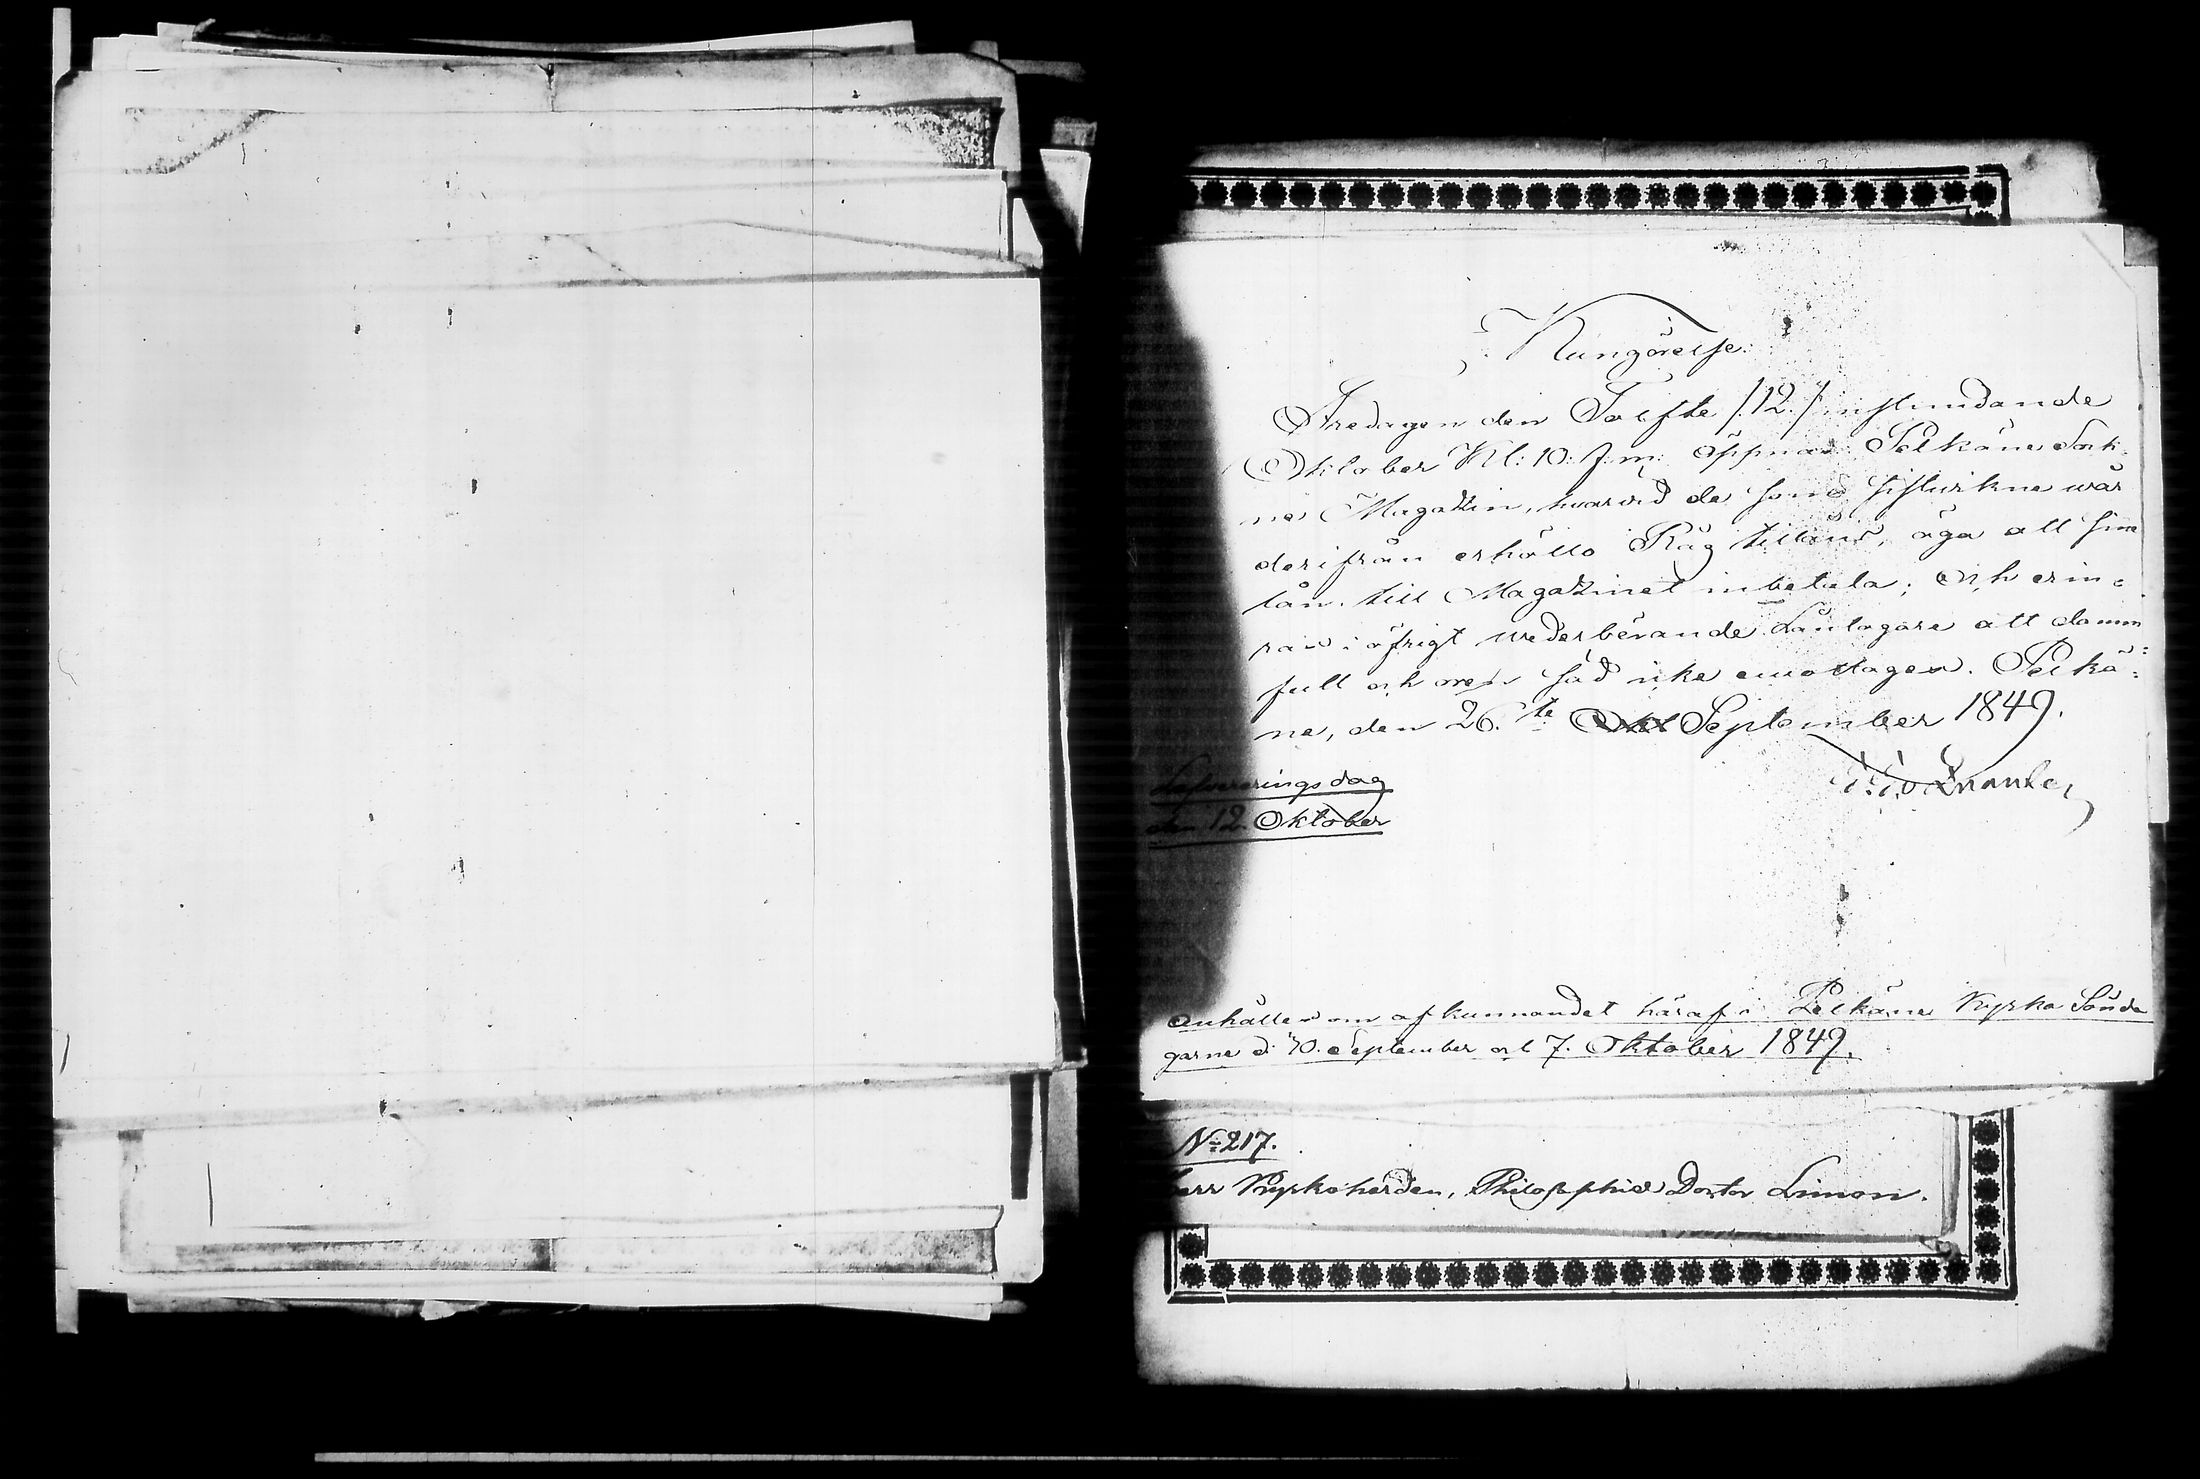 Kungörelse.
Fredagen den Tolfte /:12:/ instundande
Oktober Kl: 10. f.m. öppnas Pelkäne Sock-
nes Magazin, hvarvid de som sistwikne wår
derifrån erhållo Råg tillåns, äga att sine
lån till Magazinet inbetala; och erin-
ras i öfrigt wederbörande Låntagare att damm
full och oren säd icke emottages. Pelkä-
ne, den 26.te Okt September 1849.
Lefvereringsdag
den 12. Oktober
anhålles om afkunnandet häraf i Pelkäne Kyrka Sönda
garne d: 30. September och 7. Oktober 1849.
No 217.
Herr Kyrkoherden, Philosophiæ Doctor Limon.